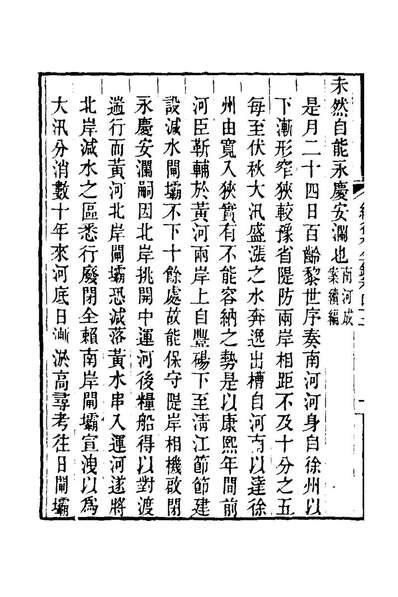 未然自能永慶安瀾也南河成案續編
是月二十四日百齡黎世序奏南河河身自徐州以
下漸形窄狹較豫省隄防兩岸相距不及十分之五
每至伏秋大汛盛漲之水奔逸出槽自河南以達徐
州由寬入狹實有不能容納之勢是以康熙年間前
河臣靳輔於黃河兩岸上自豐碭下至清江節節建
設減水閘壩不下十餘處故能保守隄岸相機啟閉
永慶安瀾嗣因北岸挑開中運河後糧船得以對渡
遄行而黃河北岸閘壩恐減落黃水串入運河遂將
北岸減水之區悉行廢閉全賴南岸閘壩宣洩以為
大汛分消數十年來河底日漸淤高尋考往日閘壩